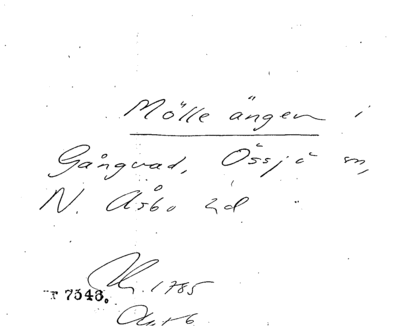 Mölle ängen i
Gångvad, Össjö sn,
N. Åsbo hd
1785
r 7343.